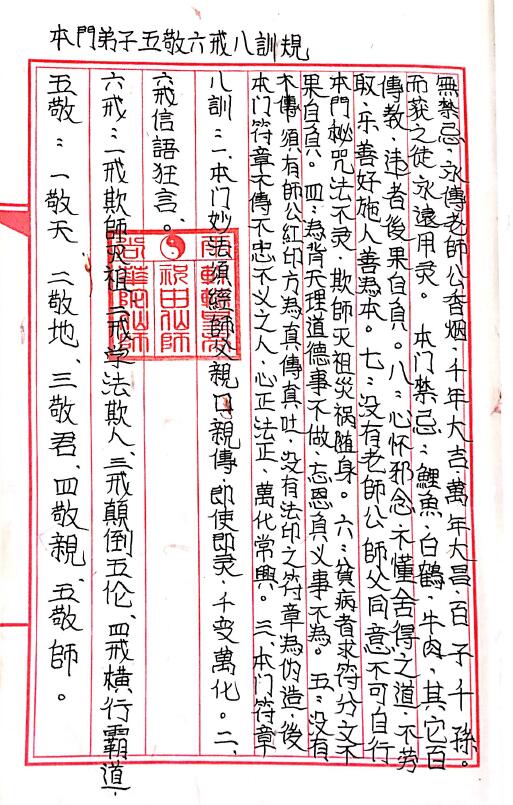 本門弟子五敬六戒八訓規
五敬：一敬天、二敬地、三敬君、四敬親、五敬師。
六戒：一戒欺師灭祖、二戒学法欺人、三戒顛倒五伦、四戒横行霸道、
六戒信語狂言。
八訓：一、本门妙法須經師父親口親傳，即使即灵，千变萬化。二、
本门符章不傳不忠不义之人，心正法正、萬化常興。三、本门符章
不傳，須有師公紅印方為真傳真吐，没有法印之符章為伪造，後
果自負。四：為背天理道德事不做，忘恩負义事不為。五：没有
本門秘咒法不灵，欺師灭祖災祸随身。六：貧病者求符分文不
取，乐善好施人善為本。七：没有老師公師父同意不可自行
傳教，违者後果自負。八：心怀邪念，不懂舍得之道，不劳
而获之徒永遠用灵。 本门禁忌：鯉魚、白鶴、牛肉、其它百
無禁忌，永傳老師公香烟，千年大吉，萬年大昌，百子千孫。
祝由仙師